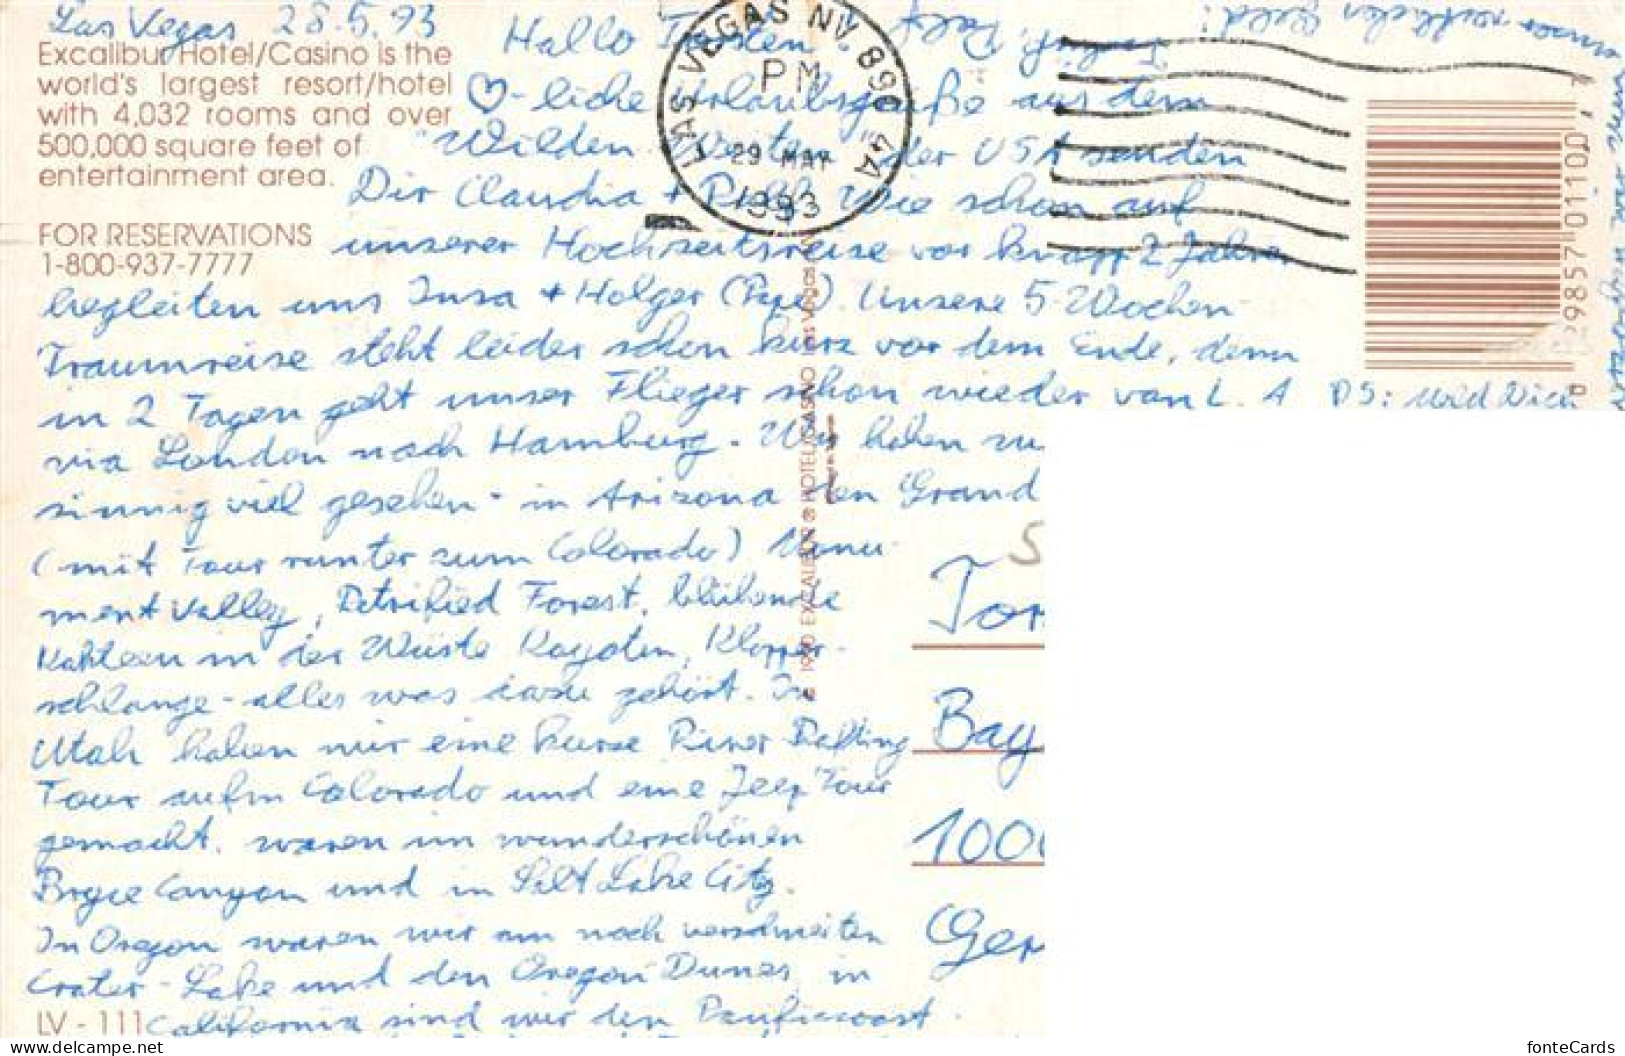 Las Vegas 28.5.93
Excalibur Hotel/Casino is the
world's largest resort/hotel
with 4,032 rooms and over
500,000 square feet of
entertainment area.
FOR RESERVATIONS
1-800-937-7777
LAS VEGAS NV 890
PM
29 MAY
1993
Hallo
♡-liche Urlaubsgrüße aus dem
"Wilden Westen" der USA senden
Dir Claudia + Wie schon auf
unserer Hochzeitsreise vor knapp 2 Jahren
begleiten uns Insa + Holger Unsere 5-Wochen-
Traumreise steht leider schon kurz vor dem Ende, denn
in 2 Tagen geht unser Flieger schon wieder von L. A
via London nach Hamburg. Wir haben
sinnig viel gesehen - in Arizona den Grand
(mit Tour runter zum Colorado) Monu-
ment Valley, Petrified Forest, blühende
Kakteen in der Wüste Kojoten, Klapper-
schlange - alles was dazu gehört. In
Utah haben wir eine kurze River Rafting
Tour aufm Colorado und eine Jeep Tour
gemacht, waren im wunderschönen
Bryce Canyon und in Salt Lake City.
In Oregon waren wir am noch verschneiten
Crater-Lake und den Oregon Dunes, in
California sind wir den Pacificcoast
LV - 111
© 1990 EXCALIBUR HOTEL/CASINO Las Vegas
PS: und Dich
Tor
Bay
100
Ger
delcampe.net
fonteCards